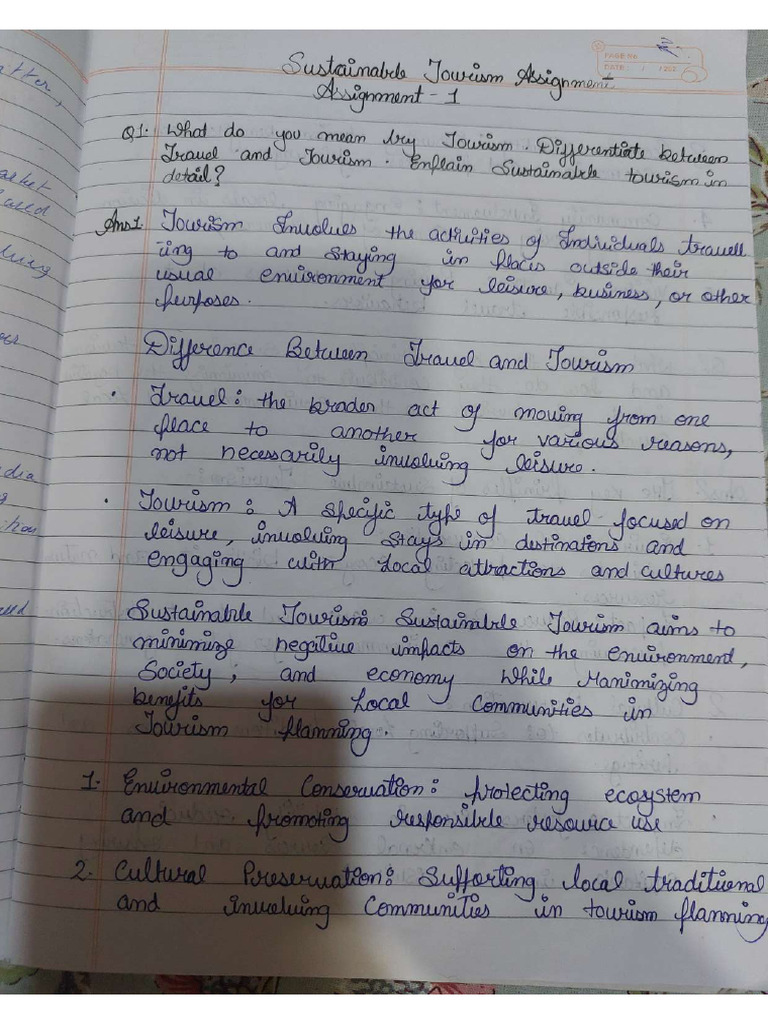 Sustainable Tourism Assignment
Assignment - 1
PAGE NO
DATE: / /202
Q1. What do you mean by Tourism. Differentiate between
Travel and Tourism. Explain Sustainable tourism in
detail?
Ans1. Tourism Involves the activities of Individuals travell
-ing to and staying in places outside their
usual environment for leisure, business, or other
purposes.
Difference Between Travel and Tourism
• Travel: the broder act of moving from one
place to another for various reasons,
not necessarily involving leisure.
• Tourism: A specific type of travel focused on
leisure, involving stays in destinations and
engaging with local attractions and cultures
Sustainable Tourism: Sustainable Tourism aims to
minimize negative impacts on the environment,
Society, and economy while Maximizing
benefits for Local Communities in
Tourism planning.
1. Environmental Conservation: protecting ecosystem
and promoting responsible resource use
2. Cultural Preservation: Supporting local traditional
and involving Communities in tourism planning
atter,
arket
ased
dia